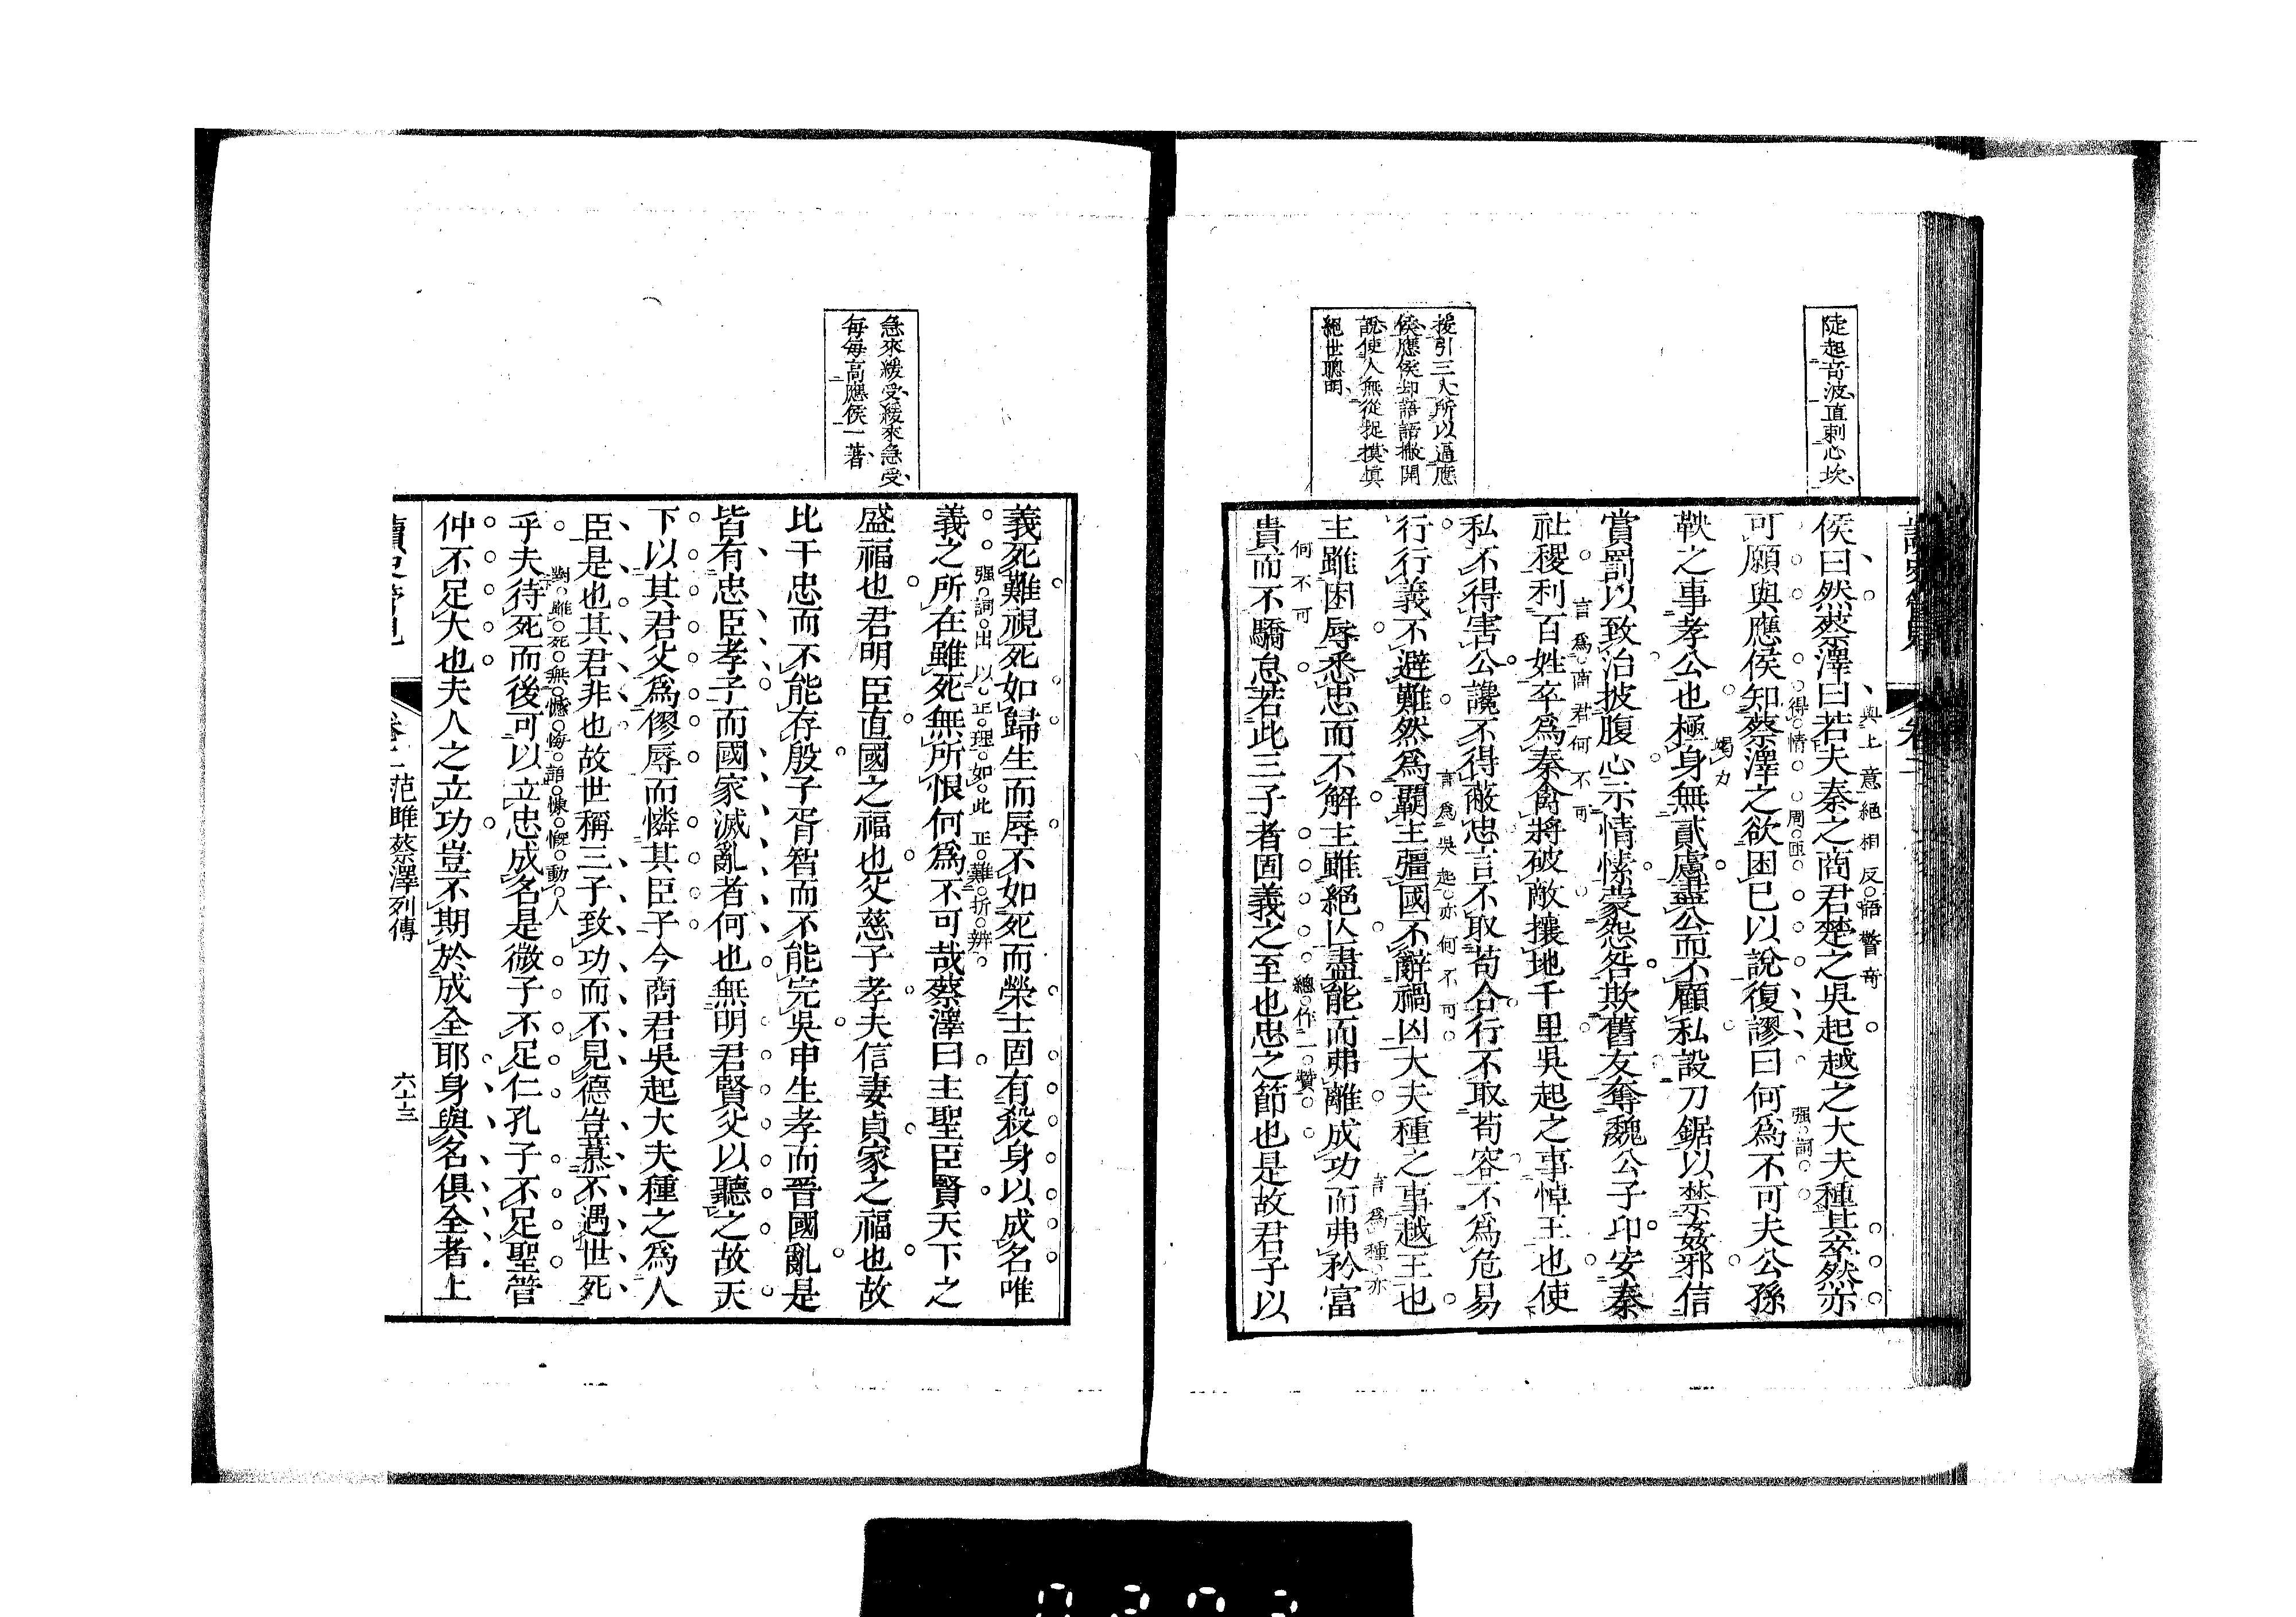 陡起奇波直刺心坎
援引三人所以逼應
侯應侯却語語撇開
說使人無從捉摸眞
絕世聰明
卷二
侯曰然蔡澤曰若夫秦之商君楚之吳起越之大夫種其卒然亦
與上意絕相反語警奇
可願與應侯知蔡澤之欲困已以說復謬曰何爲不可夫公孫
得情
周匝
强詞
鞅之事孝公也極身無貳慮盡公而不顧私設刀鋸以禁姦邪信
竭力
賞罰以致治披腹心示情愫蒙怨咎欺舊友奪魏公子卬安秦
社稷利百姓卒爲秦禽將破敵攘地千里吳起之事悼王也使
言爲商君何不可
私不得害公讒不得蔽忠言不取苟合行不取苟容不爲危易
行行義不避難然爲霸主彊國不辭禍凶大夫種之事越王也
言爲吳起亦何不可
主雖困辱悉忠而不解主雖絕亾盡能而弗離成功而弗矜富
言爲種亦
何不可
貴而不驕怠若此三子者固義之至也忠之節也是故君子以
總作一贊
急來緩受緩來急受
每每高應侯一著
義死難視死如歸生而辱不如死而榮士固有殺身以成名唯
義之所在雖死無所恨何爲不可哉蔡澤曰主聖臣賢天下之
强詞出以正理如此正難折辨
盛福也君明臣直國之福也父慈子孝夫信妻貞家之福也故
比干忠而不能存殷子胥智而不能完吳申生孝而晉國亂是
皆有忠臣孝子而國家滅亂者何也無明君賢父以聽之故天
下以其君父爲僇辱而憐其臣子今商君吳起大夫種之爲人
臣是也其君非也故世稱三子致功而不見德豈慕不遇世死
乎夫待死而後可以立忠成名是微子不足仁孔子不足聖管
對雖死無憾悔語慷慨動人
仲不足大也夫人之立功豈不期於成全耶身與名俱全者上
讀史管見
卷二
范雎蔡澤列傳
六十三